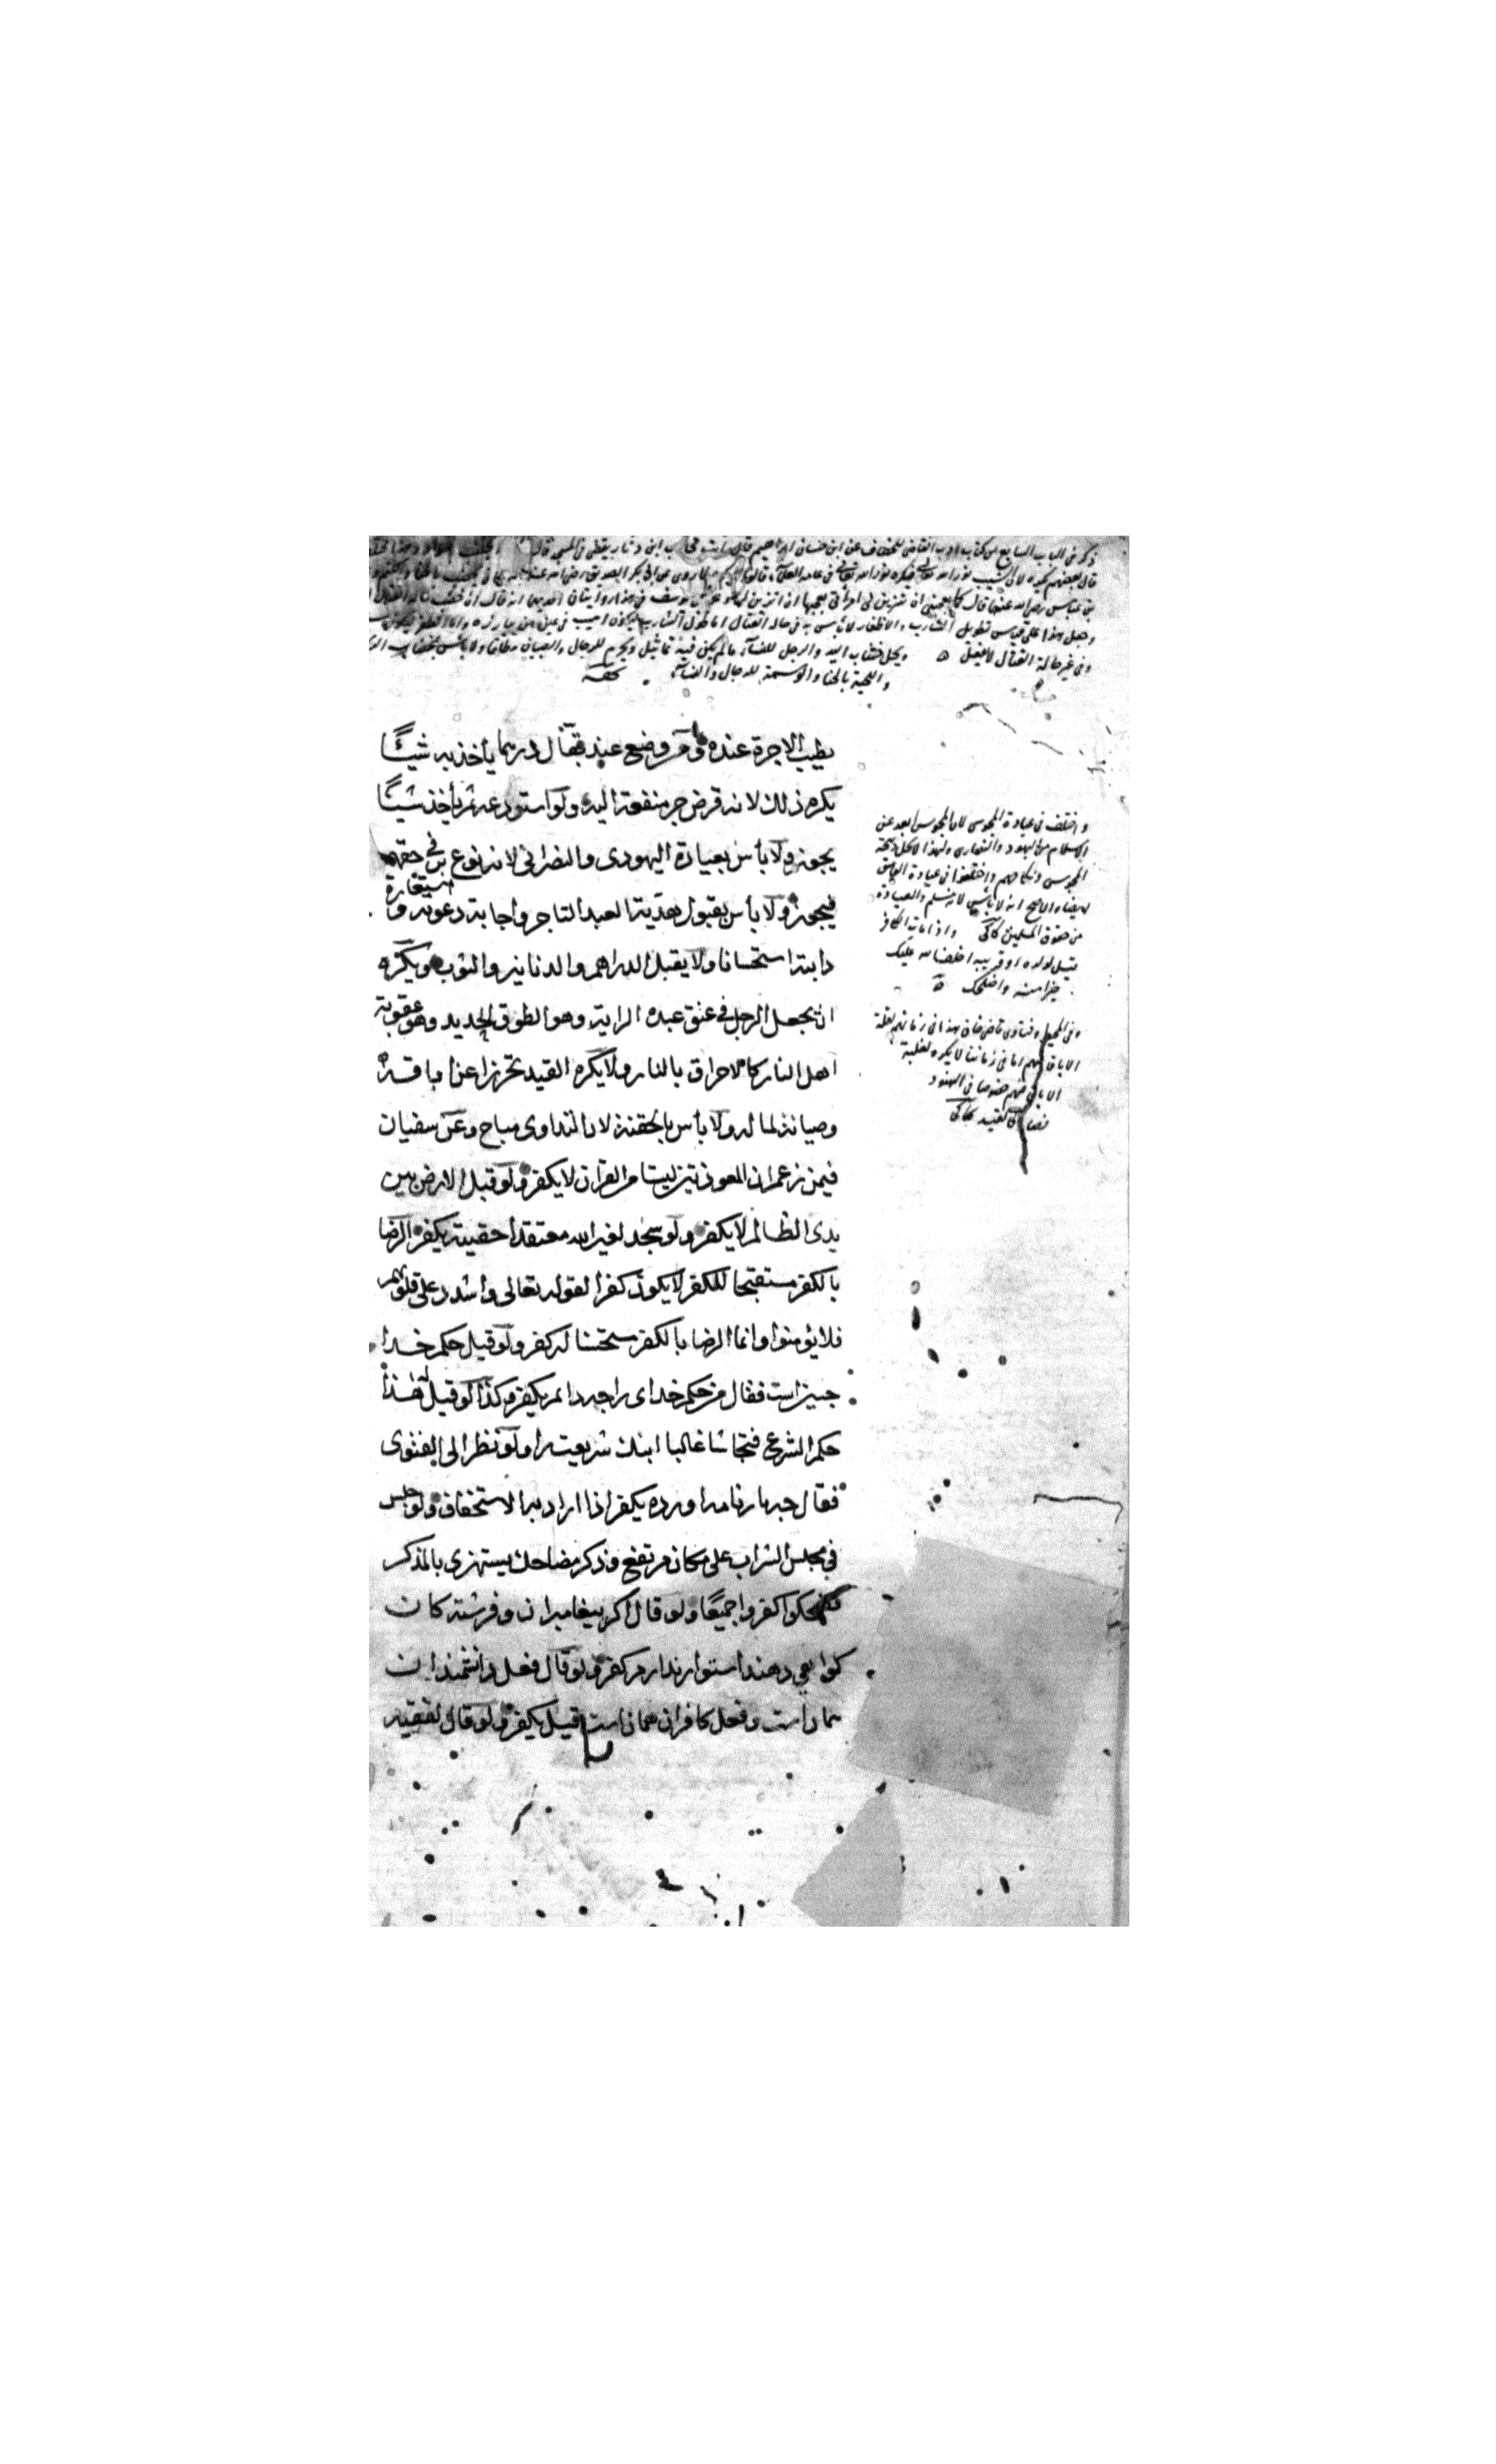 ذكر فى الباب السابع من كتاب ادب القاضى للخصاف عن ابن حسان ابراهيم قال رايت محارب ابن دثار يقضى فى المسجد قال
قال بعضهم يكره لان الشيب نور الله تعالى فيكره نور الله تعالى عن عامة العلماء قالوا لما روى عن ابى بكر الصديق رضى الله عنه
بن عباس رضى الله عنهما قال كما يعجبنى ان تتزين لى امراتى يعجبها ان اتزين لها
وحمل هذا على قياس تطويل الشارب والاظفار لا باس به فى حالة القتال اما طول الشارب ليكون اهيب فى عين من يبارزه واما
وفى غير حالة القتال لا يفعل ويحل خضاب اليد والرجل للنساء مالم يكن فيه تماثيل ويحرم للرجال والصبيان مطلقا ولا باس بخضاب
واللحية بالحناء والوسمة للرجال والنساء
يطيب الاجرة عنده ومن وضع عند بقال درهما يأخذ به شيئًا
يكره ذلك لانه قرض جر منفعة اليه ولو استودعه ثم يأخذ شيئًا
يجوز ولا بأس بعيادة اليهودى والنصرانى لانه نوع بر فى حقهم
فيجوز ولا بأس بقبول هدية العبد التاجر واجابة دعوته و استعارة
دابته استحسانا ولا يقبل الدراهم والدنانير والثوب ويكره
ان يجعل الرجل فى عنق عبده الراية وهو الطوق الحديد وهو عقوبة
اهل النار كالاحراق بالنار ولا يكره القيد تحرزا عن اباقه
وصيانة لماله ولا بأس بالحقنة لان التداوى مباح وعن سفيان
فيمن زعم ان المعوذتين ليستا من القرآن لا يكفر ولو قبل الارض بين
يدى الظالم لا يكفر ولو سجد لغير الله معتقدا حقيته يكفر الرضا
بالكفر مستقبحا للكفر لا يكون كفرا لقوله تعالى واشدد على قلوبهم
فلا يؤمنوا وانما الرضا بالكفر مستحسنا له كفر ولو قيل حكم خدا
چنين است فقال من حكم خداى را چه دانم يكفر وكذا لو قيل له هذا
حكم الشرع فتجاشا غالبا اينك شريعت را ولو نظر الى الفتوى
فقال چه بارنامه اورده يكفر اذا اراد به الاستخفاف ولو جلس
فى مجلس الشراب على مكان مرتفع وذكر مضاحك يستهزى بالمذكر
فضحكوا كفروا جميعًا ولو قال اكر پيغامبران وفرشته كان
كواهى دهند استوار ندارم كفر ولو قال فعل دانشمندان
همانست وفعل كافران همانست قيل يكفر ولو قال لفقيه
واختلف فى عيادة المجوسى لان المجوس ابعد عن
الاسلام من اليهود والنصارى ولهذا لا يحل ذبيحة
المجوسى ونكاحهم واختلفوا فى عيادة الفاسق
ايضا والاصح انه لا باس لانه مسلم والعيادة
من حقوق المسلمين كاكى واذا مات الكافر
قيل لوالده او قريبه اخلف الله عليك
خيرا منه واصلحك
وفى المحيط وفتاوى قاضى خان هذا فى زمانهم لقلة
الاباق منهم اما فى زماننا لا يكره لغلبة
الاباق منهم خصوصا فى الهنود
فصار كالقيد كاكى